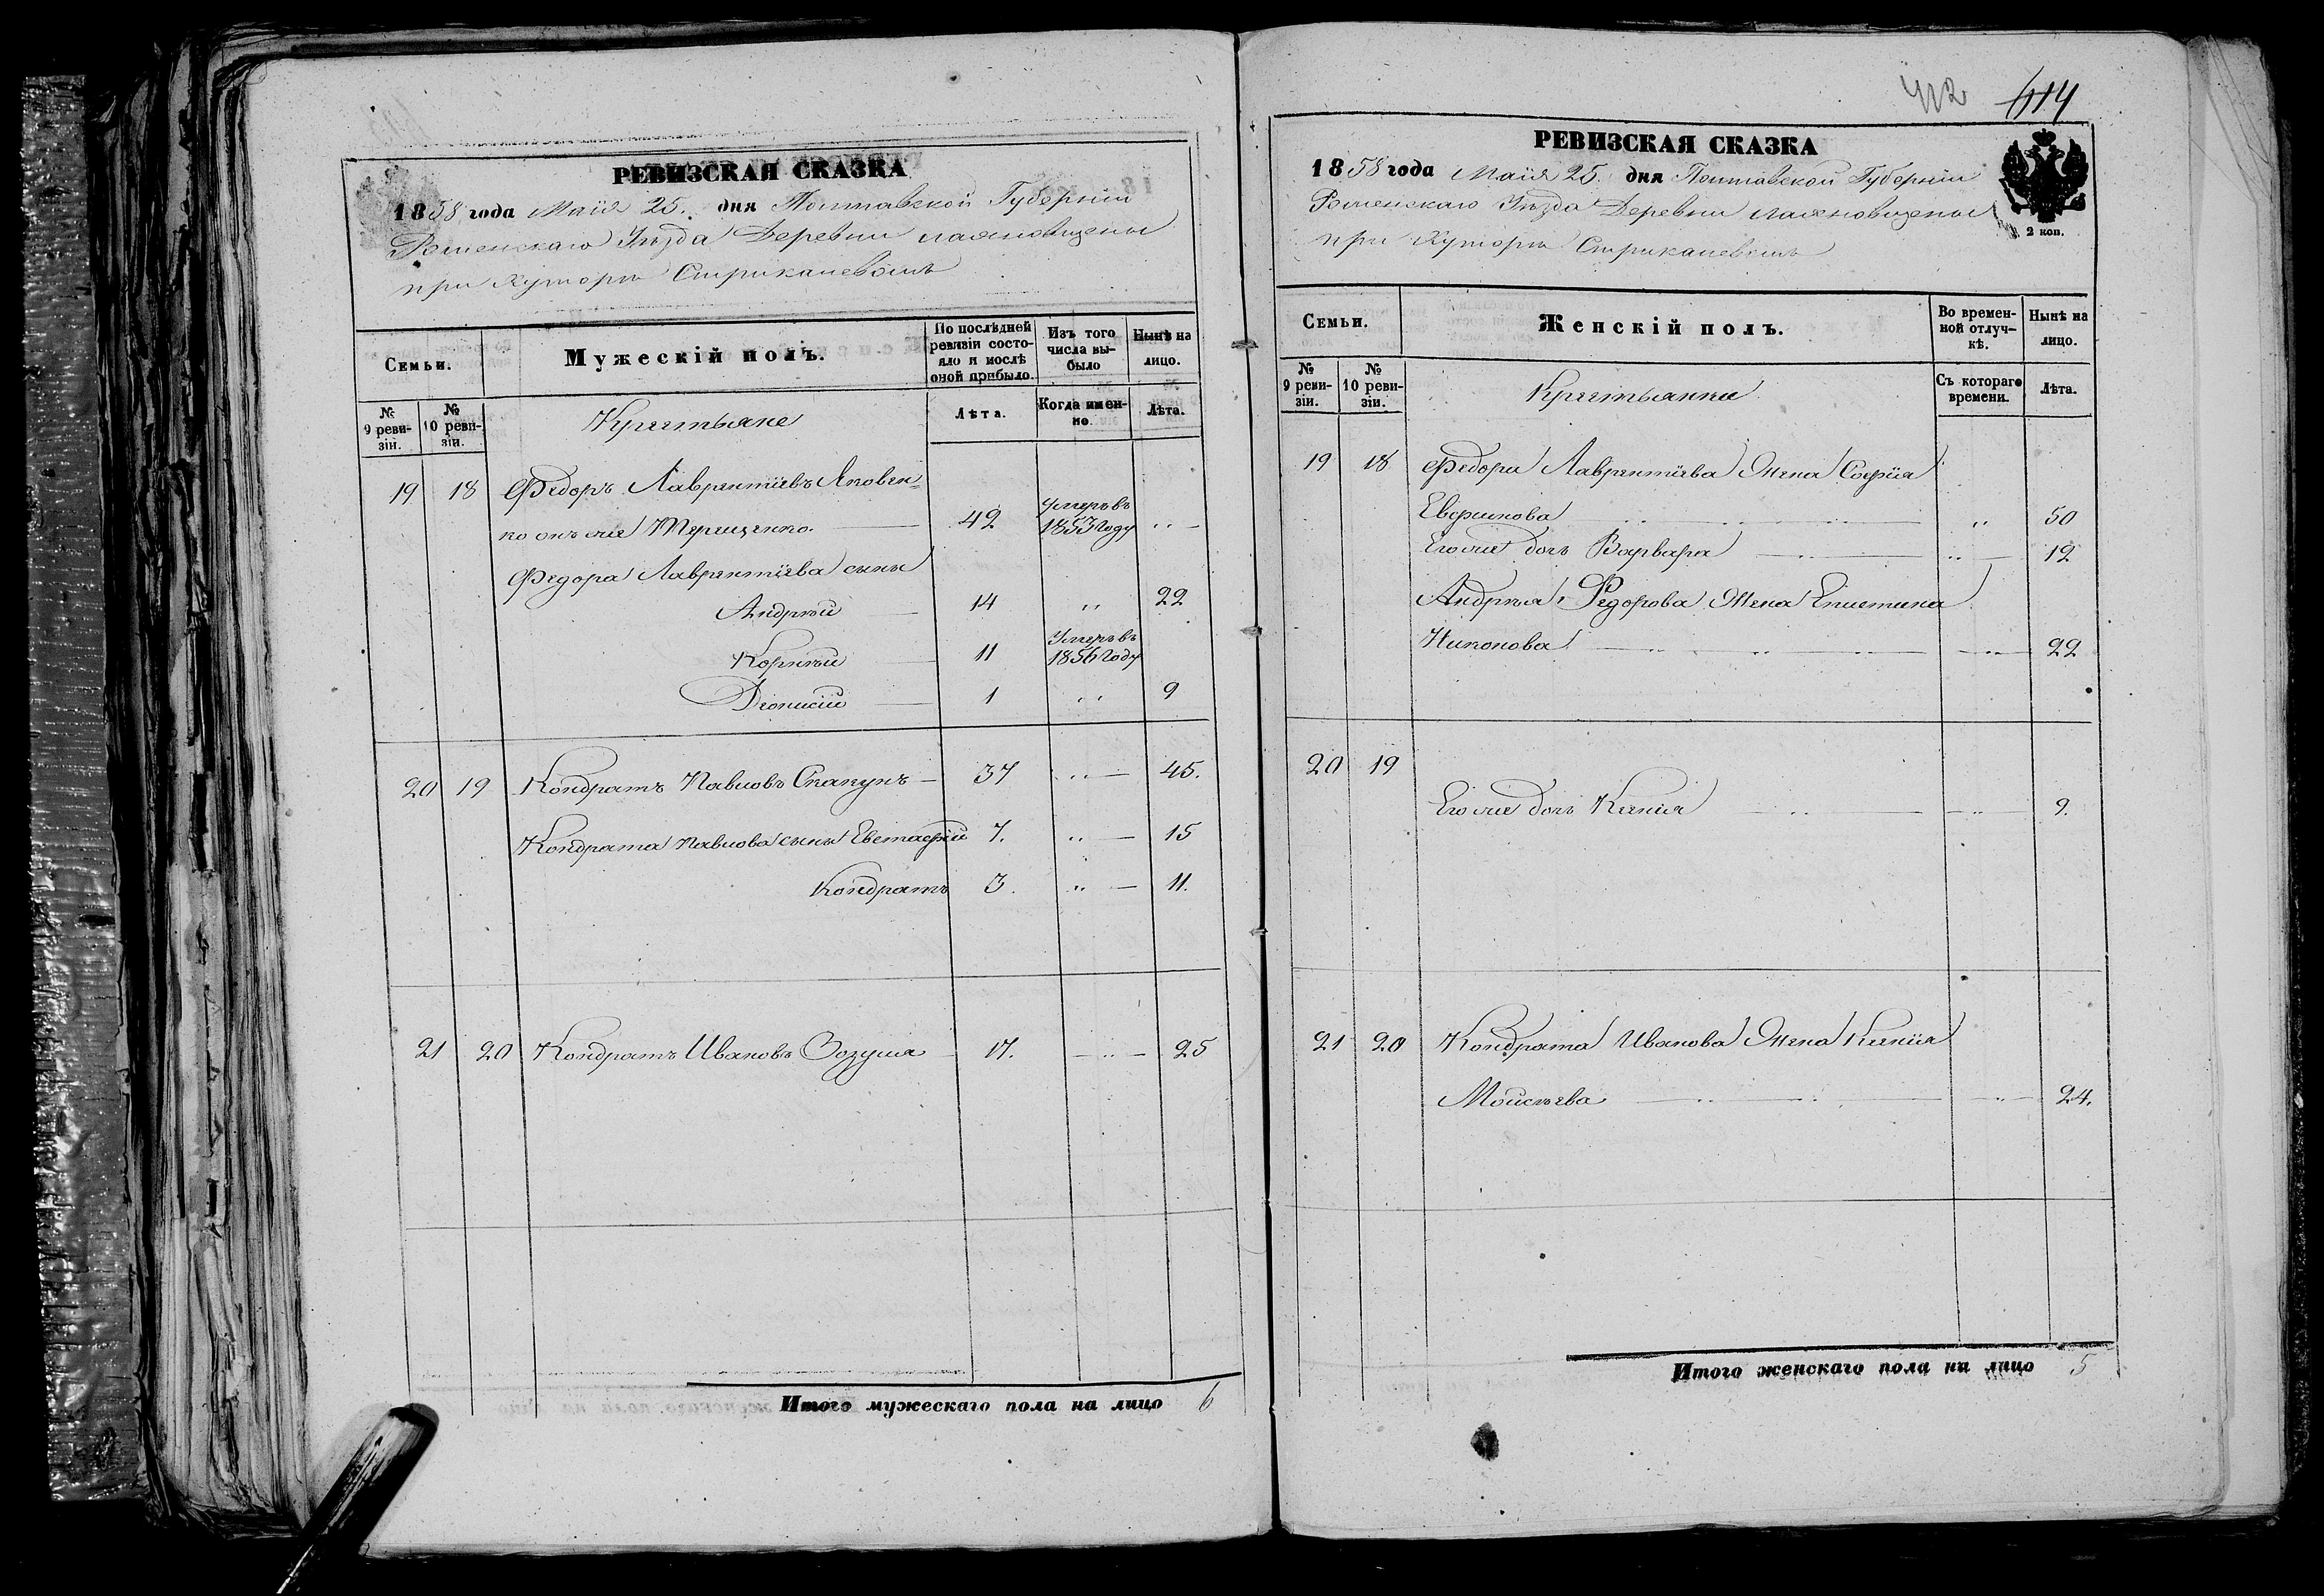 РЕВИЗСКАЯ СКАЗКА
1858 года Маія 25. дня Полтавской Губерніи
Роменскаго Уѣзда Деревни
при Хуторѣ Стрикачевомъ
Семьи.
Мужескій полъ.
По послѣдней ревизіи состояло и послѣ оной прибыло.
Изъ того числа выбыло
Нынѣ на лицо.
№ 9 ревизіи.
№ 10 ревизіи.
Крестьяне
Лѣта.
Когда именно.
Лѣта.
19 18 Федоръ Лаврентіевъ Яковен=
ко онъ же Терещенко. 42 Умеръ въ 1853 году
Федора Лаврентіева сыны
Андрѣй 14 " 22
Корнѣй 11 Умеръ въ 1856 году
Діонисій 1 " 9
20 19 Кондратъ Павловъ Скакунъ 37 " 45.
Кондрата Павлова сыны Евстафій 7. " 15
Кондратъ 3. " 11.
21 20 Кондратъ Ивановъ Зозуля 17. " 25
Итого мужескаго пола на лицо 6
412 614
РЕВИЗСКАЯ СКАЗКА
1858 года Маія 25. дня Полтавской Губерніи
Роменскаго Уѣзда Деревни
при Хуторѣ Стрикачевомъ
2 коп.
Семьи.
Женскій полъ.
Во временной отлучкѣ.
Нынѣ на лицо.
№ 9 ревизіи.
№ 10 ревизіи.
Крестьянки
Съ котораго времени.
Лѣта.
19 18 Федора Лаврентіева Жена Софія
Евфимова " 50
Его же дочь Варвара " 12
Андрѣя Федорова Жена Епистима
Никонова " 22
20 19
Его же дочь Ксенія " 9.
21 20 Кондрата Иванова Жена Ксенія
Моисѣева " 24.
Итого женскаго пола на лицо 5